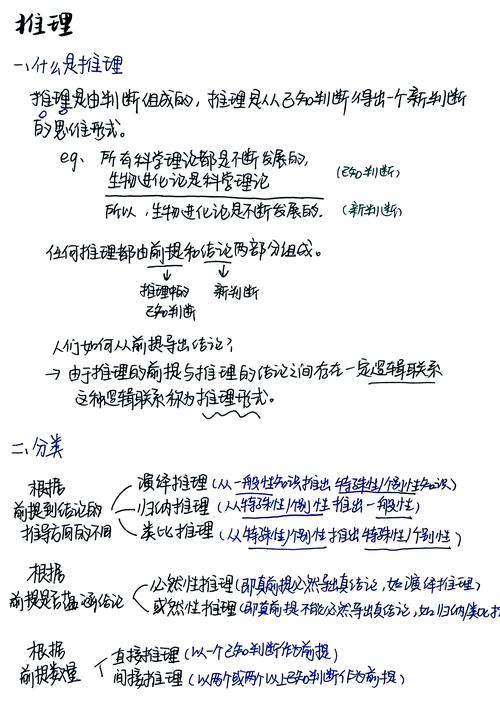 推理
一、什么是推理
推理是由判断组成的，推理是从已知判断得出一个新判断
的思维形式。
eg、所有科学理论都是不断发展的，
生物进化论是科学理论 （已知判断）
所以，生物进化论是不断发展的. （新判断）
任何推理都由前提和结论两部分组成。
↓ ↓
推理中的 新判断
已知判断
人们如何从前提导出结论？
→ 由于推理的前提与推理的结论之间存在一定逻辑联系
这种逻辑联系称为推理形式。
二、分类
根据
前提到结论的
推导方向的不同
演绎推理（从一般性知识推出特殊性/个别性知识）
归纳推理（从特殊性/个别性推出一般性）
类比推理（从特殊性/个别性推出特殊性/个别性）
根据
前提是否蕴涵结论
必然性推理（即真前提必然导真结论，如演绎推理）
或然性推理（即真前提不能必然导出真结论，如归纳/类比
根据
前提数量
直接推理（以一个已知判断作为前提）
间接推理（以两个或两个以上已知判断作为前提）